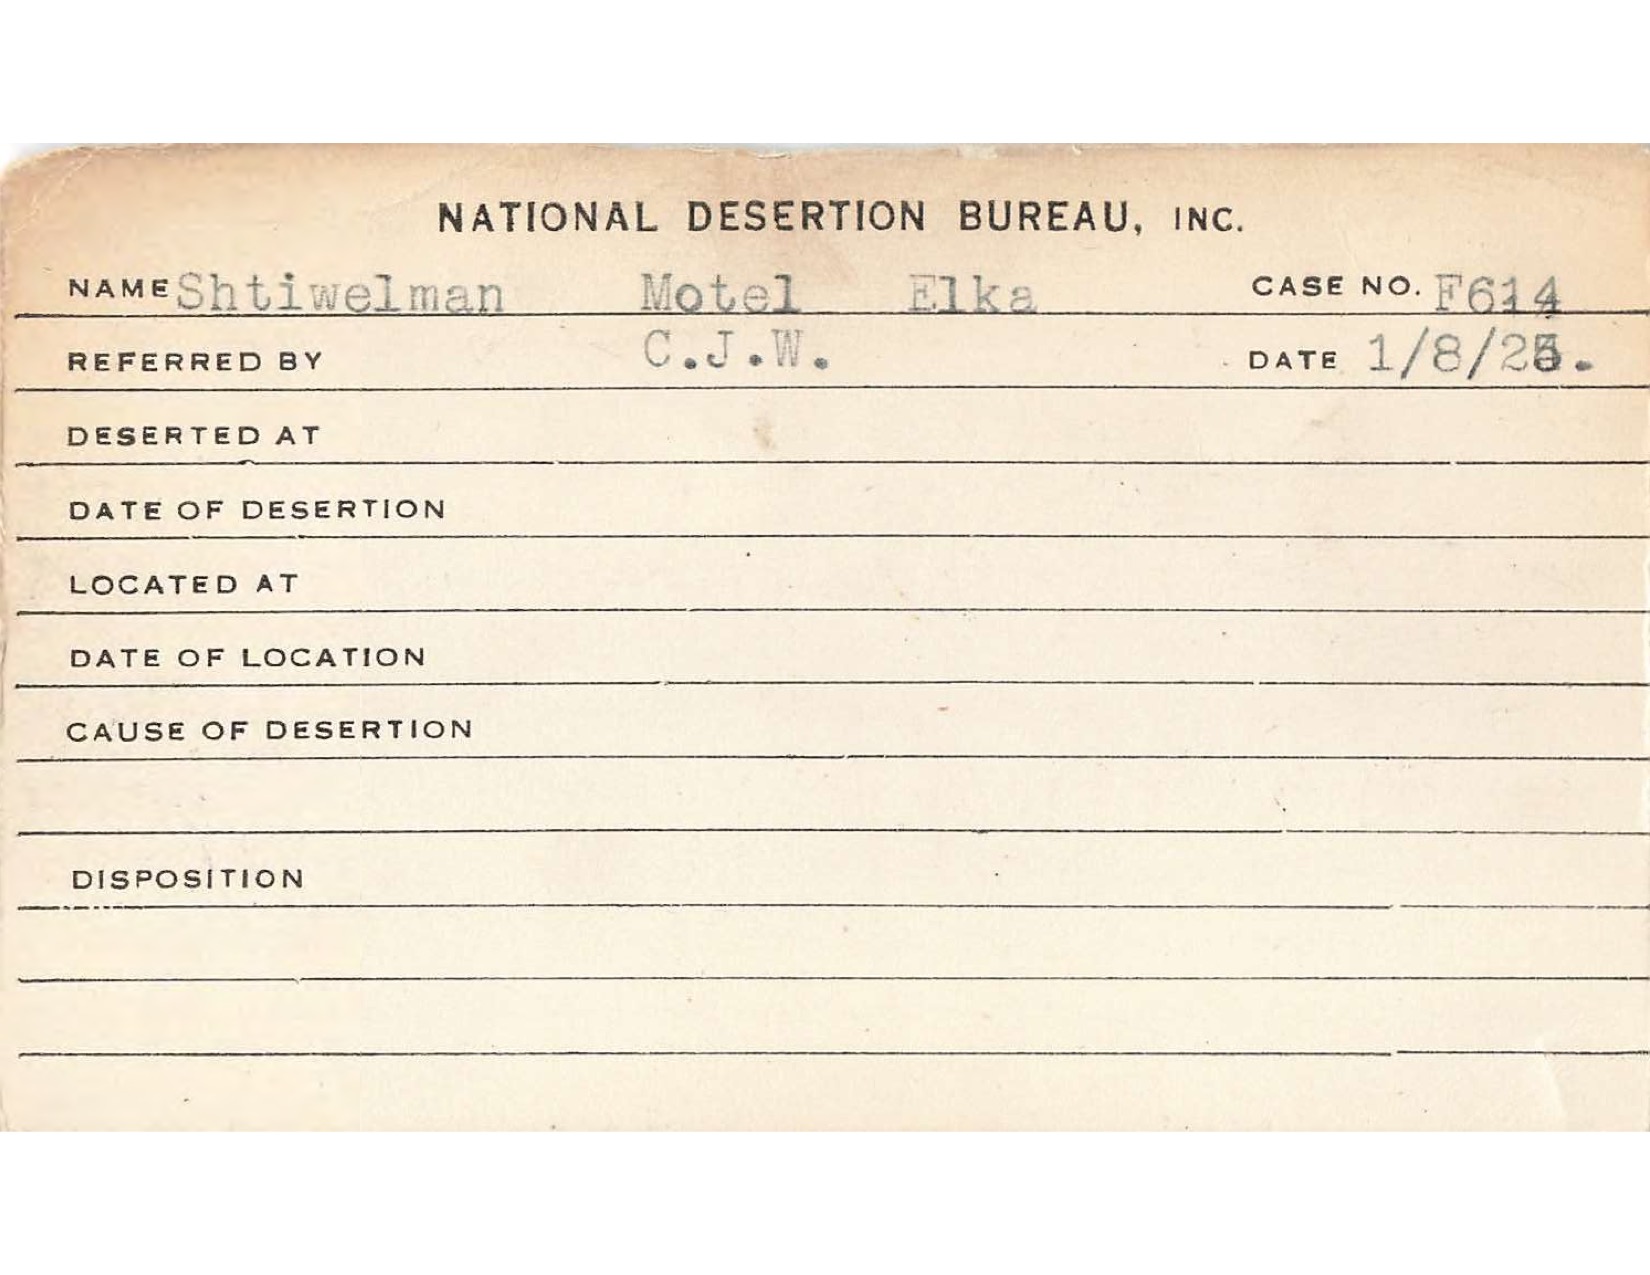 NATIONAL DESERTION BUREAU, INC.
NAME Shtiwelman Motel Elka CASE NO. F614
REFERRED BY C.J.W. DATE
DESERTED AT
DATE OF DESERTION
LOCATED AT
DATE OF LOCATION
CAUSE OF DESERTION
DISPOSITION